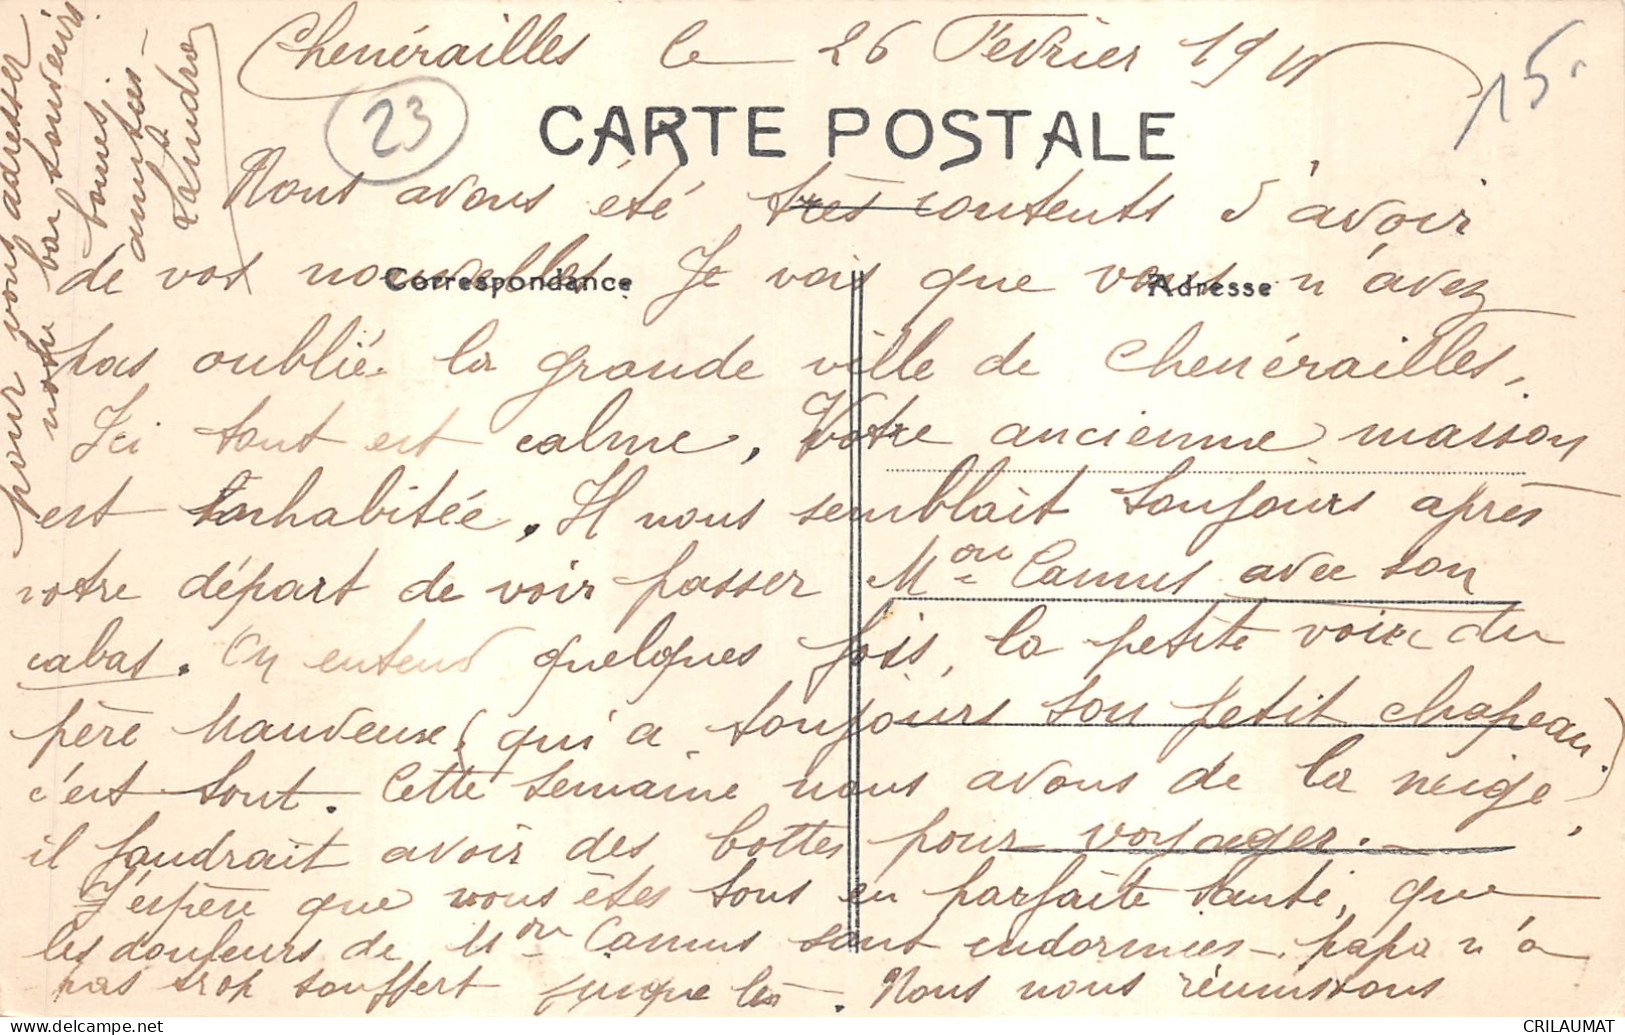 Chenérailles le 26 Février 19
15
23
CARTE POSTALE
Nous avons été très contents d'avoir
Correspondance
Adresse
de vos nouvelles Je vois que vous n'avez
pas oublié la grande ville de Chenérailles,
Ici tout est calme, Votre ancienne maison
est inhabitée. Il nous semblait toujours après
votre départ de voir passer Mme Camus avec son
cabas. On entend quelques fois, la petite voix du
père (qui a toujours son petit chapeau)
c'est tout. Cette semaine nous avons de la neige,
il faudrait avoir des bottes pour voyager.
J'espère que vous êtes tous en parfaite santé, que
les douleurs de Mme Camus sont endormies. papa n'a
pas trop souffert jusque là. Nous nous réunissons
pour vous adresser
nos bon souvenirs
bonnes
amitiés -
CRILAUMAT